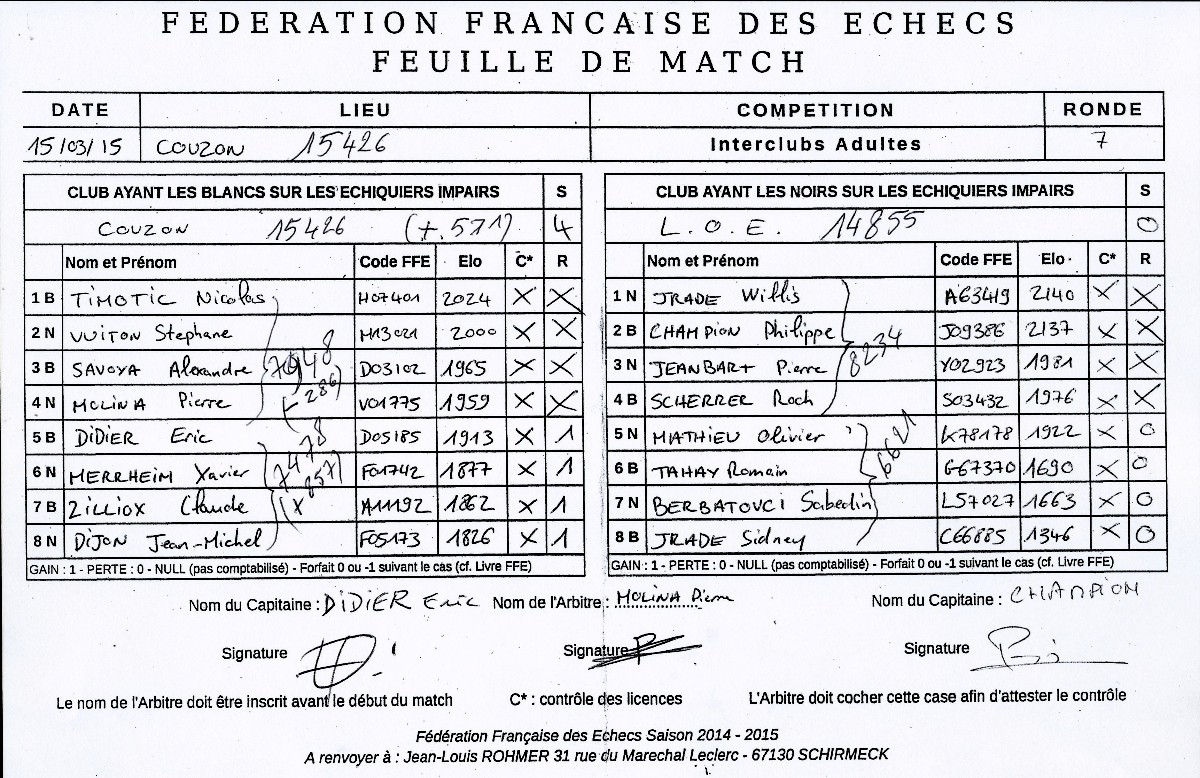 FEDERATION FRANCAISE DES ECHECS
FEUILLE DE MATCH
DATE LIEU COMPETITION RONDE
15/03/15 COUZON 15426 Interclubs Adultes 7
CLUB AYANT LES BLANCS SUR LES ECHIQUIERS IMPAIRS S CLUB AYANT LES NOIRS SUR LES ECHIQUIERS IMPAIRS S
COUZON 15426 (+.571) 4 L.O.E. 14855 0
Nom et Prénom Code FFE Elo C* R Nom et Prénom Code FFE Elo C* R
1 B TIMOTIC Nicolas H07401 2024 X X 1 N JRADE Willis A63419 2140 X X
2 N VUITON Stephane M13021 2000 X X 2 B CHAMPION Philippe J09386 2137 X X
3 B SAVOYA Alexandre 7948 D03102 1965 X X 3 N JEANBART Pierre 8234 Y02923 1981 X X
4 N MOLINA Pierre (-286) V01775 1959 X X 4 B SCHERRER Roch S03432 1976 X X
5 B DIDIER Eric D05185 1913 X 1 5 N MATHIEU Olivier K78178 1922 X 0
6 N MERRHEIM Xavier 7478 F01742 1877 X 1 6 B TAHAY Romain 6621 G67370 1690 X 0
7 B ZILLIOX Claude (+857) A11192 1862 X 1 7 N BERBATOVCI Sabedin L57027 1663 X 0
8 N DIJON Jean-Michel F05173 1826 X 1 8 B JRADE Sidney C66885 1346 X 0
GAIN : 1 - PERTE : 0 - NULL (pas comptabilisé) - Forfait 0 ou -1 suivant le cas (cf. Livre FFE) GAIN : 1 - PERTE : 0 - NULL (pas comptabilisé) - Forfait 0 ou -1 suivant le cas (cf. Livre FFE)
Nom du Capitaine : DIDIER Eric Nom de l'Arbitre : MOLINA Pierre Nom du Capitaine : CHAMPION
Signature Signature Signature
Le nom de l'Arbitre doit être inscrit avant le début du match C* : contrôle des licences L'Arbitre doit cocher cette case afin d'attester le contrôle
Fédération Française des Echecs Saison 2014 - 2015
A renvoyer à : Jean-Louis ROHMER 31 rue du Marechal Leclerc - 67130 SCHIRMECK